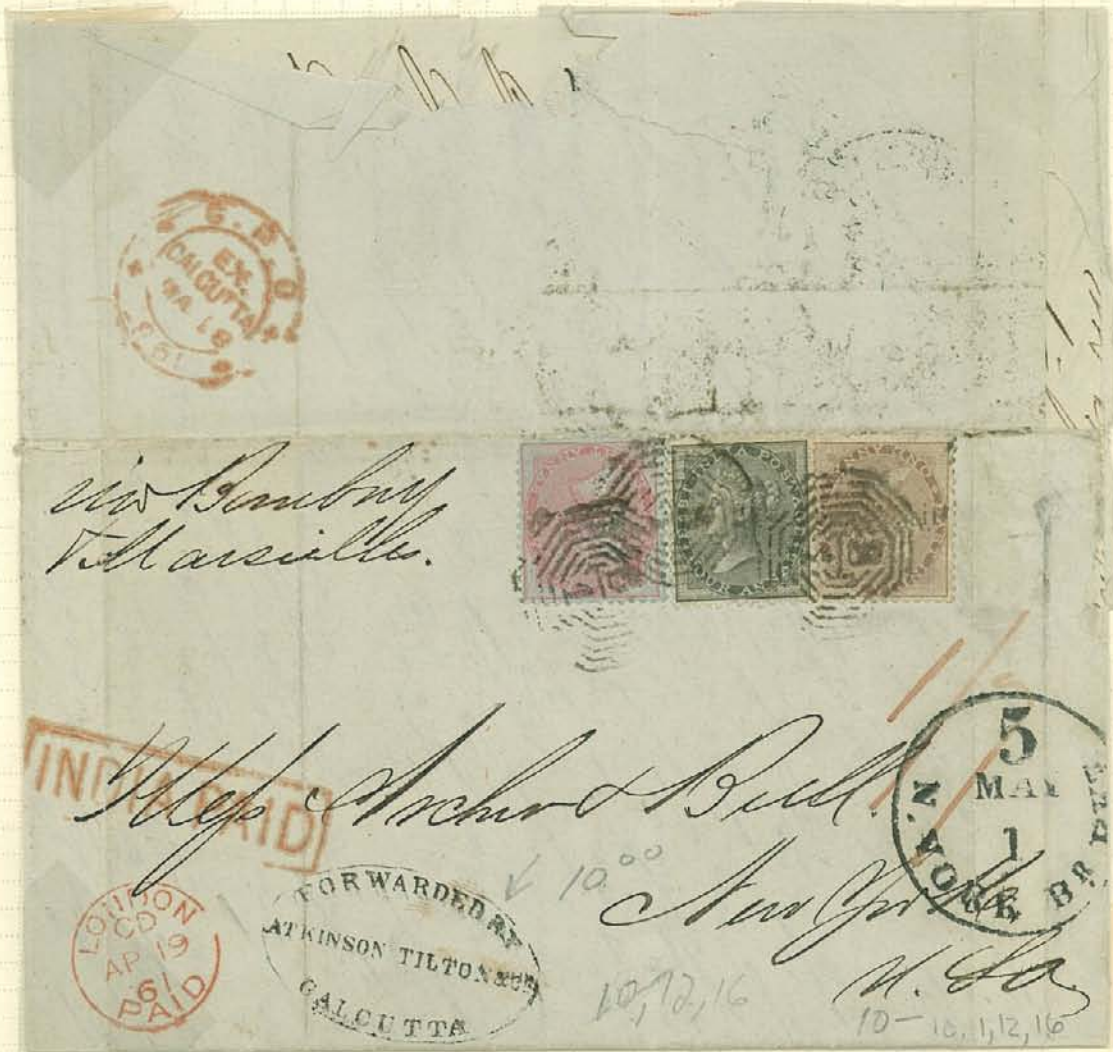 G.P.O
EX.
CALCUTTA
MA 18
1861
via Bombay
& Marseilles.
FOUR ANNAS
INDIA PAID
Mess Archer & Bull.
New York
U. Sa
5
MAY
1
N. YORK BR PKT
LONDON
CD
AP 19
61
PAID
FORWARDED BY
ATKINSON TILTON & Co
CALCUTTA
10.00
10, 12, 16
10 — 10, 1, 12, 16